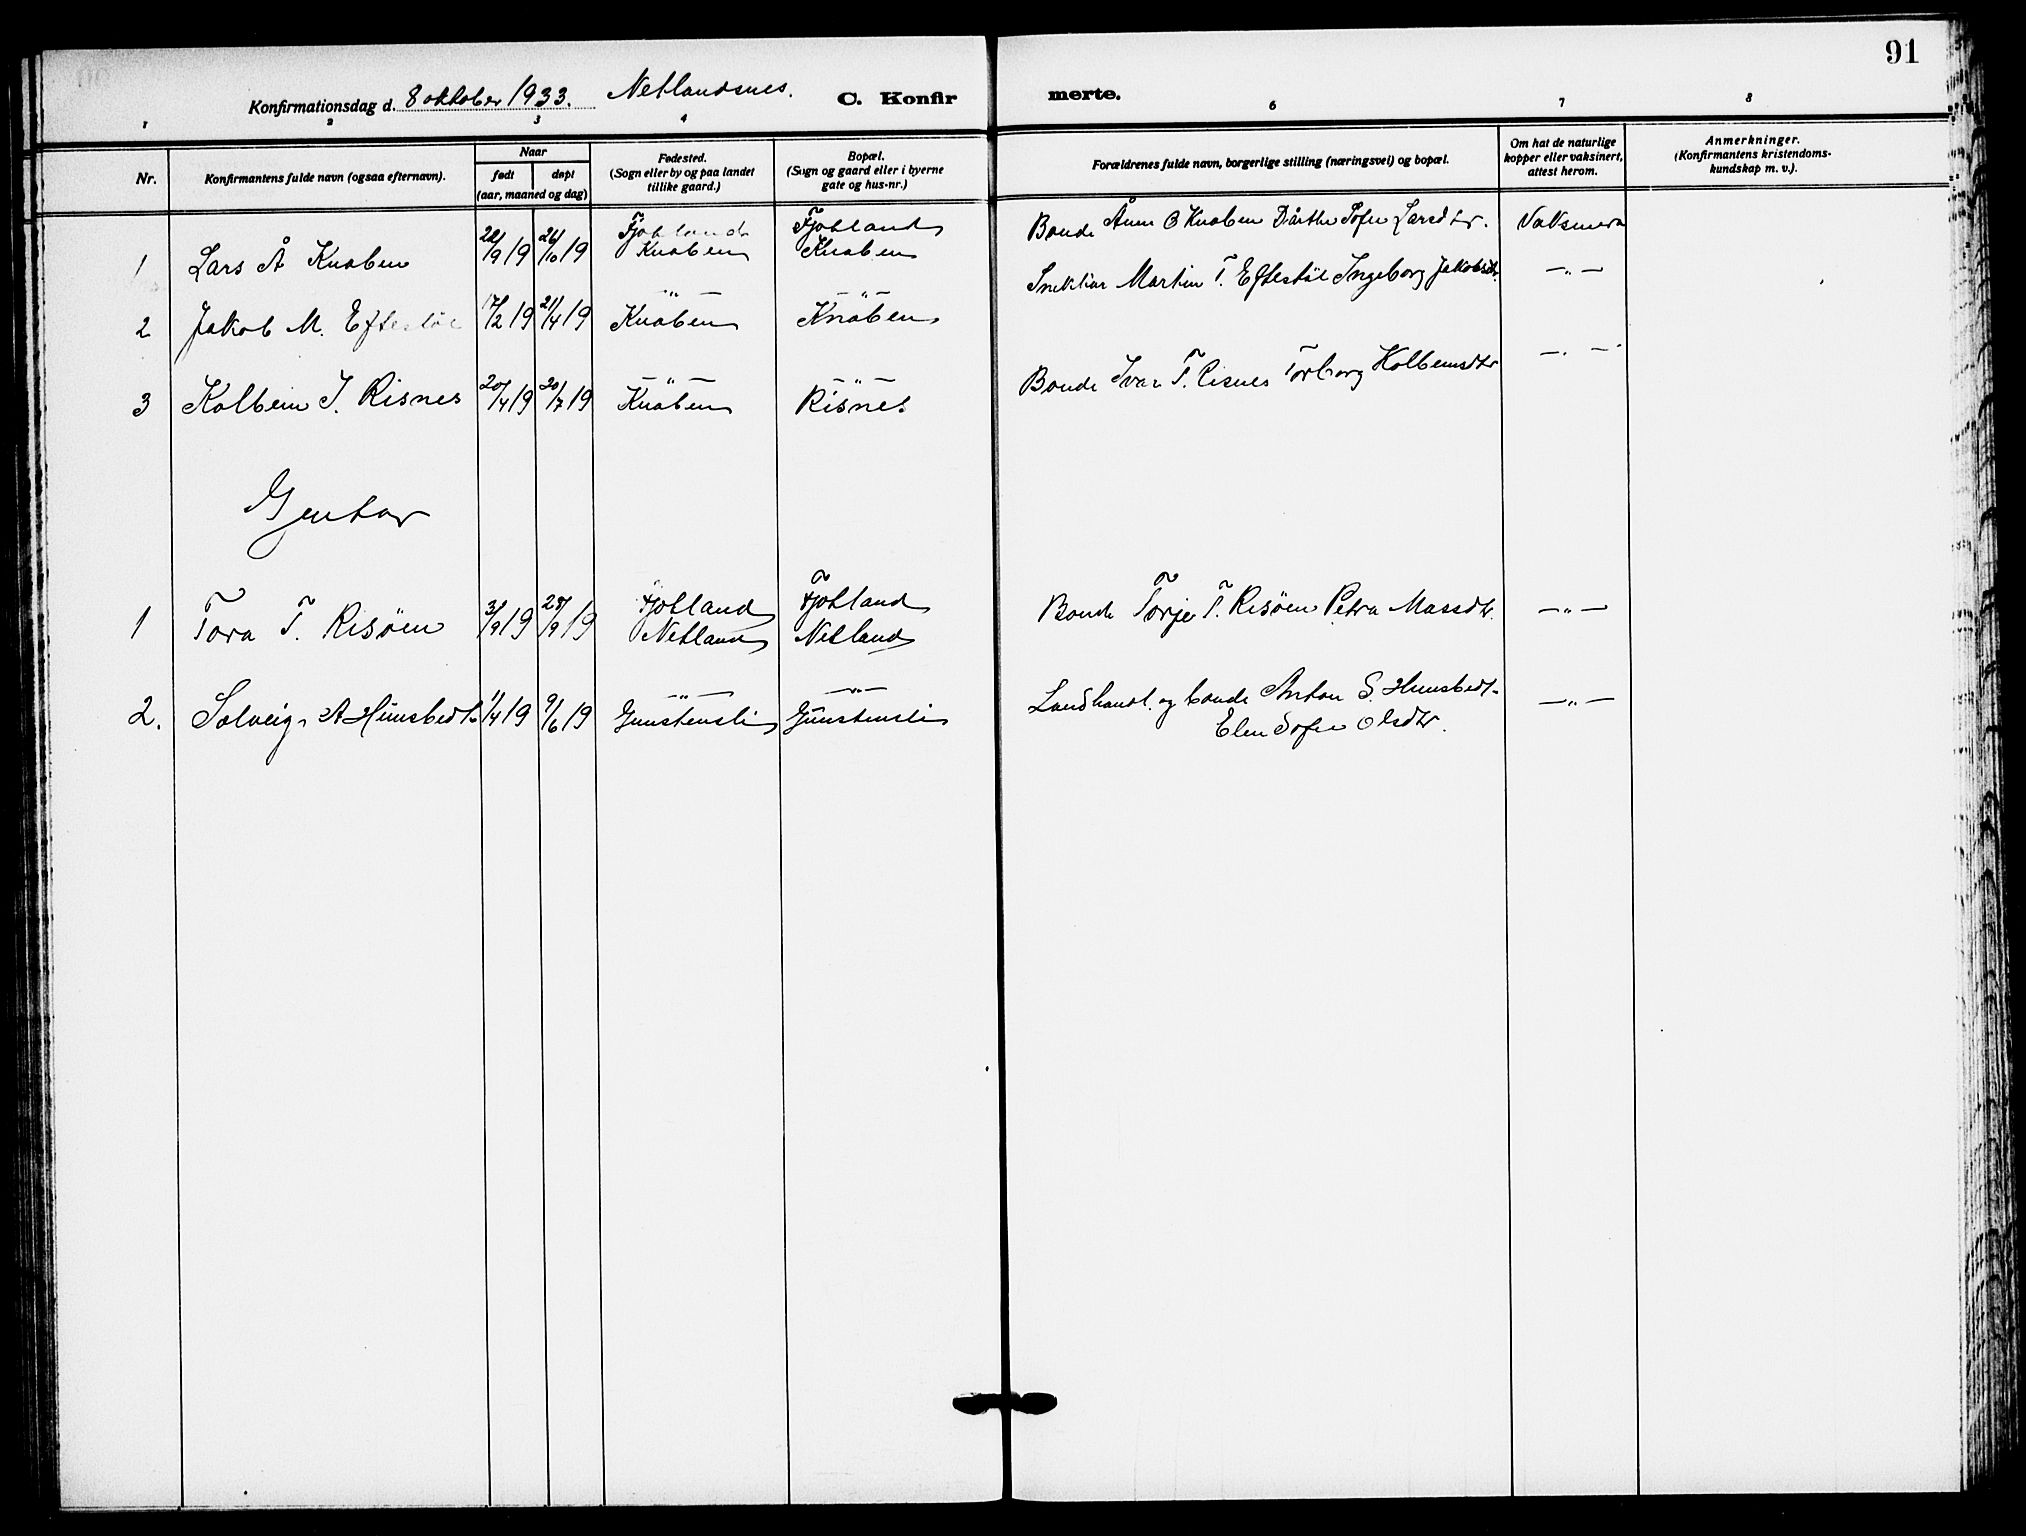 91
Konfirmationsdag d. 8 oktober 1933. Netlandsnes. C. Konfirmerte.
1 2 3 4 6 7 8
Nr.
Konfirmantens fulde navn (ogsaa efternavn).
Naar
født døpt
(aar, maaned og dag)
Fødested.
(Sogn eller by og paa landet
tillike gaard.)
Bopæl.
(Sogn og gaard eller i byerne
gate og hus-nr.)
Forældrenes fulde navn, borgerlige stilling (næringsvei) og bopæl.
Om hat de naturlige
kopper eller vaksinert,
attest herom.
Anmerkninger.
(Konfirmantens kristendoms-
kundskap m. v.).
Fjotland Fjotland Bonde Ånen O Knaben Dårthe Sofie Larsdtr. Vaksinera
1 Lars Å Knaben /9 19 26/10 19 Knaben Knaben
—„— —„— Snekkar Martin T. Eftestøl Ingeborg Jakobsdtr. —„—
2 Jakob M. Eftestøl 17/2 19 21/4 19 Knaben Knaben
—„— —„— Bonde Ivar T. Risnes Torborg Kolbensdtr —„—
3 Kolbein I. Risnes 20/4 19 20/7 19 Knaben Risnes
Gentor
Fjotland Fjotland
1 Tora T. Risøen 3/9 19 28/9 19 Netland Netland Bonde Torje T. Risøen Petra Massdtr. —„—
—„— —„— Landhandl. og bonde Anton S. Hunsbedt. —„—
2. Solveig A Hunsbedt 1/4 19 9/6 19 Gunstensli Gunstensli Elen Sofie Olsdtr.